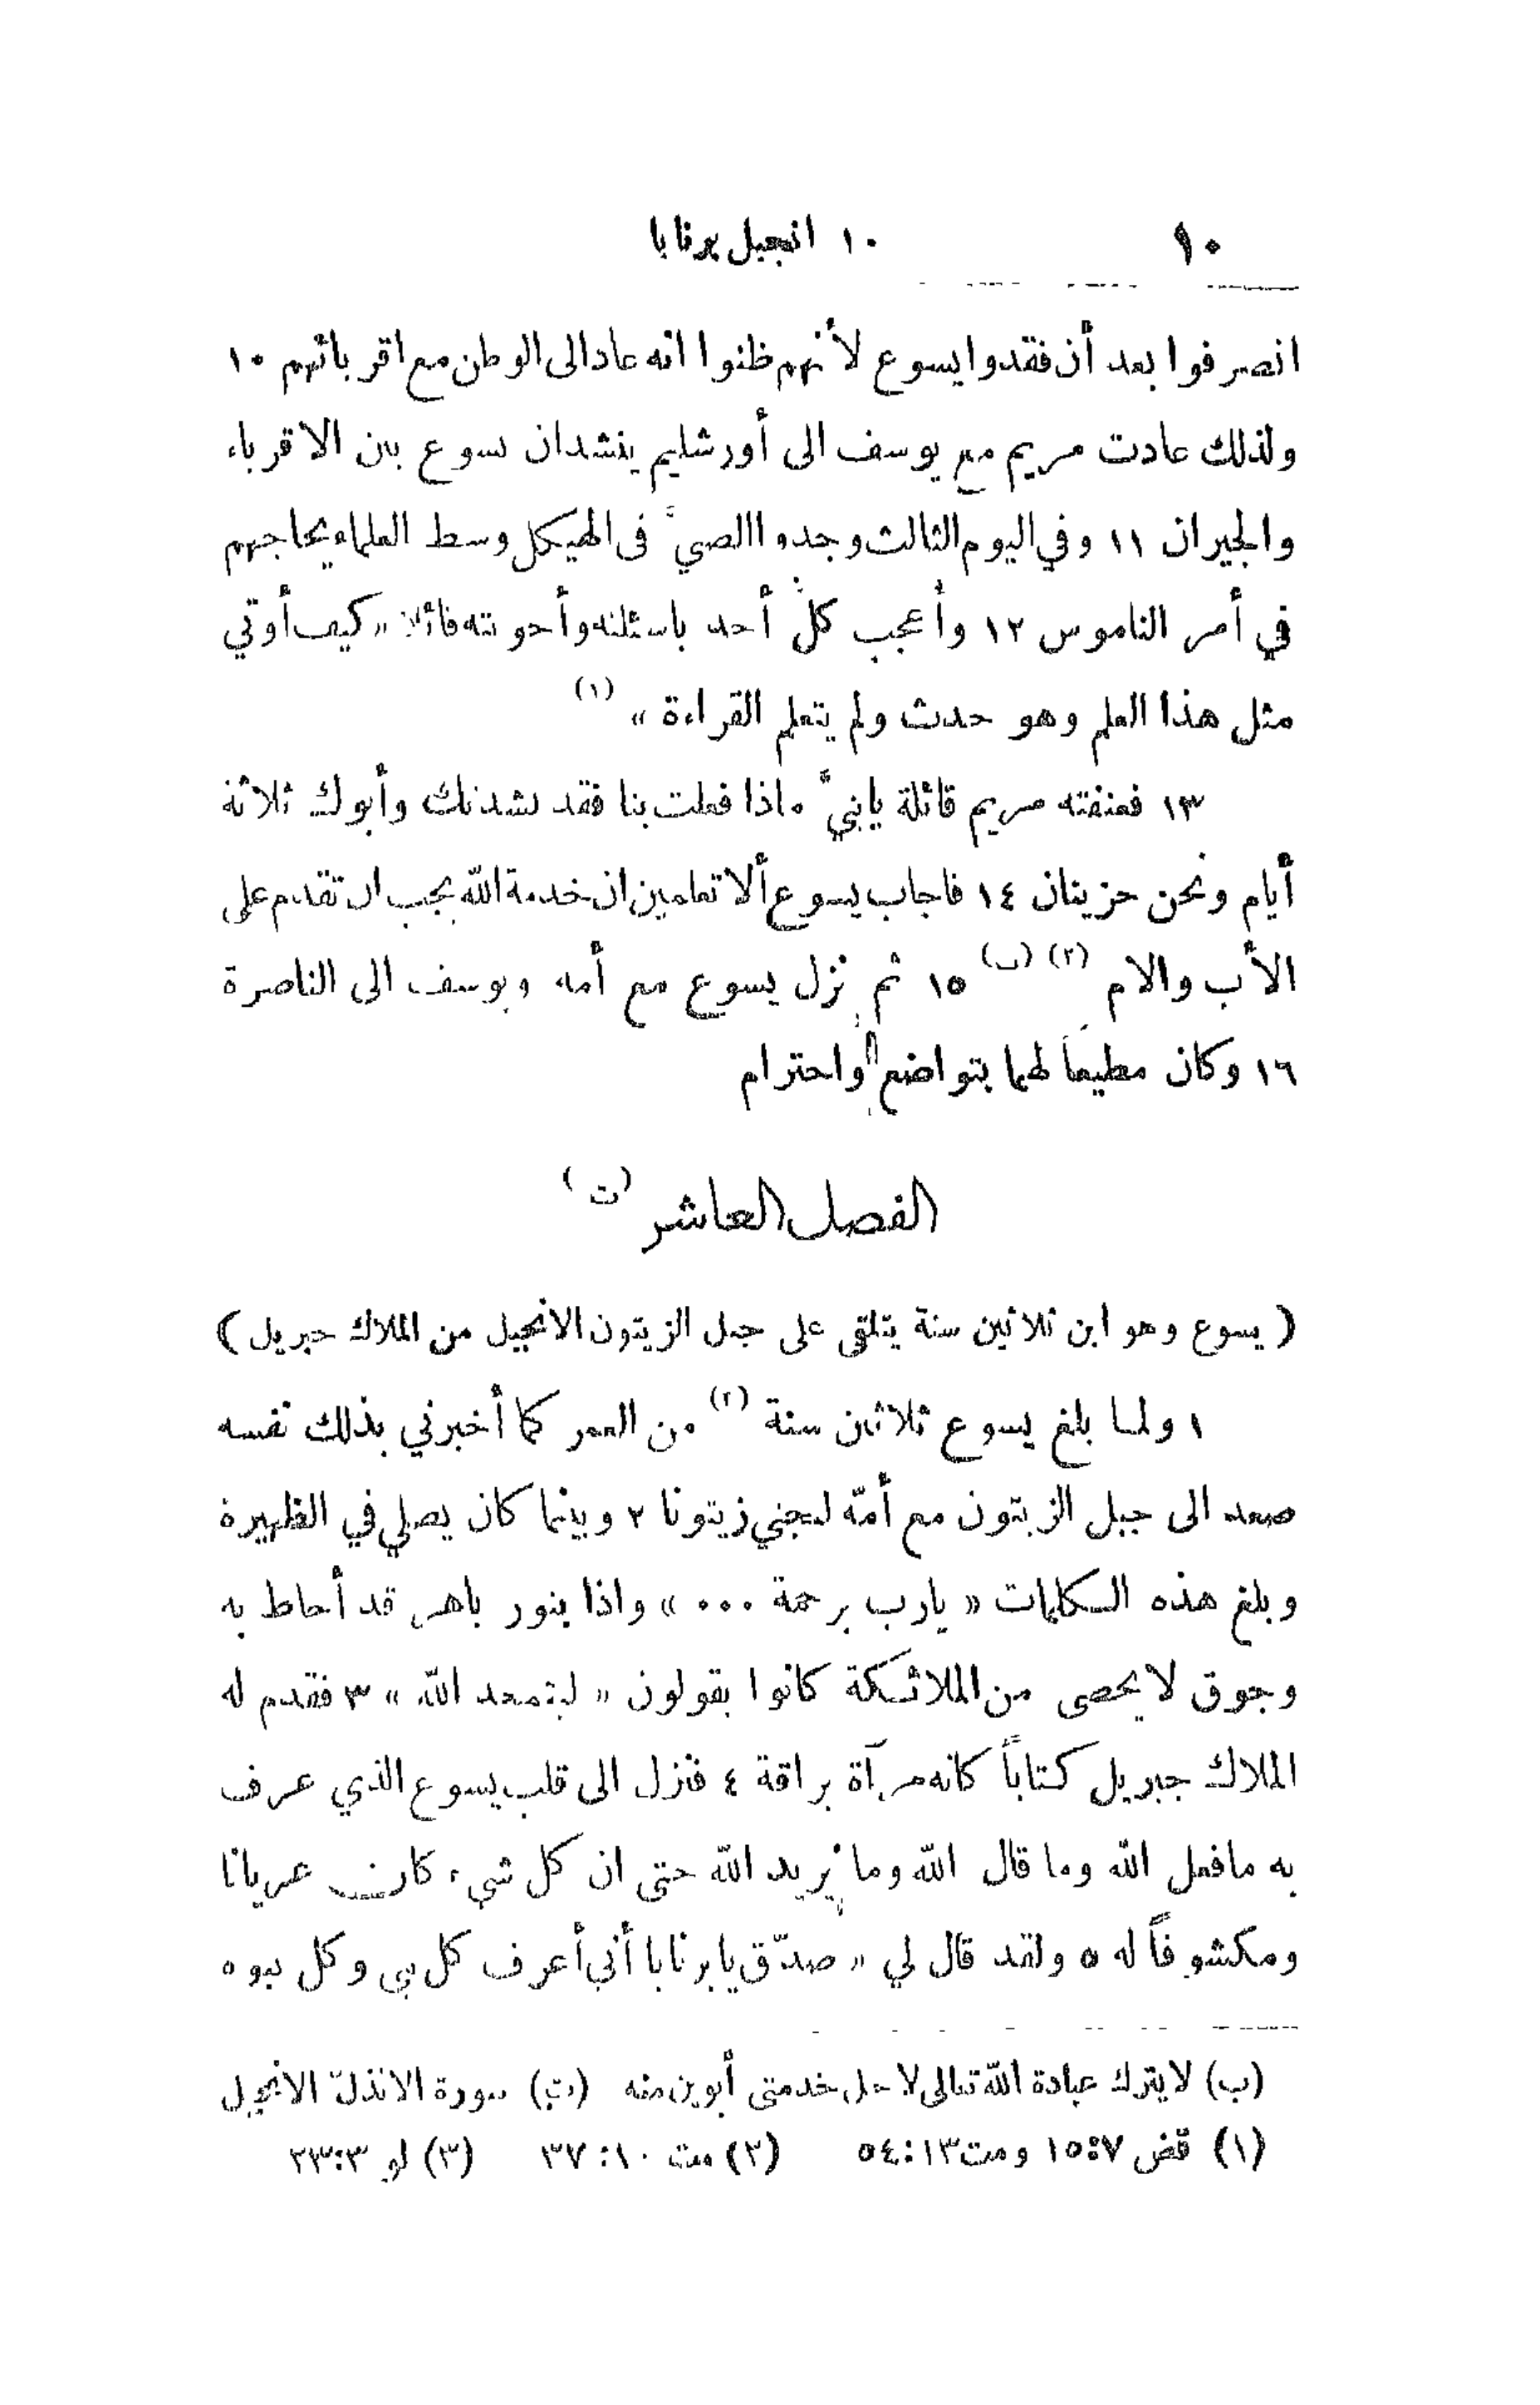 ١٠ ١٠ انجيل برنابا
انصرفوا بعد أن فقدوا يسوع لأنهم ظنوا انه عاد الى الوطن مع اقربائهم ١٠
ولذلك عادت مريم مع يوسف الى أورشليم ينشدان يسوع بين الاقرباء
والجيران ١١ وفي اليوم الثالث وجدوا الصبيَّ فى الهيكل وسط العلماء يحاجهم
في أمر الناموس ١٢ وأعجب كلُّ أحد باسئلته وأجوبته قائلا « كيف أوتي
مثل هذا العلم وهو حدث ولم يتعلم القراءة » (١)
١٣ فعنفته مريم قائلة يابنيَّ ماذا فعلت بنا فقد نشدتك وأبوك ثلاثة
أيام ونحن حزينان ١٤ فاجاب يسوع ألا تعلمين ان خدمة الله يجب ان تقدم على
الأب والام (٢) (ب) ١٥ ثم نزل يسوع مع أمه ويوسف الى الناصرة
١٦ وكان مطيعاً لهما بتواضع واحترام
الفصل العاشر (ت)
( يسوع وهو ابن ثلاثين سنة يتلقى على جبل الزيتون الانجيل من الملاك جبريل )
١ ولما بلغ يسوع ثلاثين سنة (٣) من العمر كما أخبرني بذلك نفسه
صعد الى جبل الزيتون مع أمّه ليجني زيتونا ٢ وبينما كان يصلي في الظهيرة
وبلغ هذه الكلمات « يارب برحمة ... » واذا بنور باهر قد أحاط به
وجوق لا يحصى من الملائكة كانوا يقولون « ليتمجد الله » ٣ فقدم له
الملاك جبريل كتاباً كانه مرآة براقة ٤ فنزل الى قلب يسوع الذي عرف
به مافعل الله وما قال الله وما يريد الله حتى ان كل شيء كان عريانا
ومكشوفاً له ٥ ولقد قال لي « صدّق يابرنابا أني أعرف كل نبي وكل نبوه
(ب) لا يترك عبادة الله تعالى لا جل خدمتى أبوين منه (ت) سورة الانذلة الانجيل
(١) قض ١٥:٧ ومت ٥٤:١٣ (٢) مت ٣٧:١٠ (٣) لو ٢٣:٣